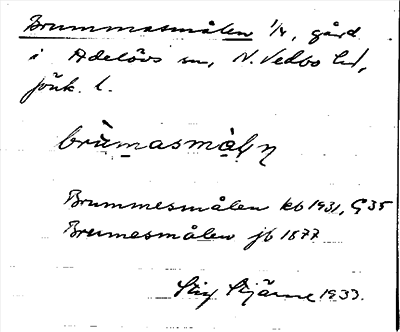 Brummasmålen 1/4, gård
i Adelövs sn, N. Vedbo hd,
jönk. l.
brùmasmå̀lṇ
Brummesmålen kb 1931, G 35
Brumesmålen jb 1877
Stig Stjärne 1933.